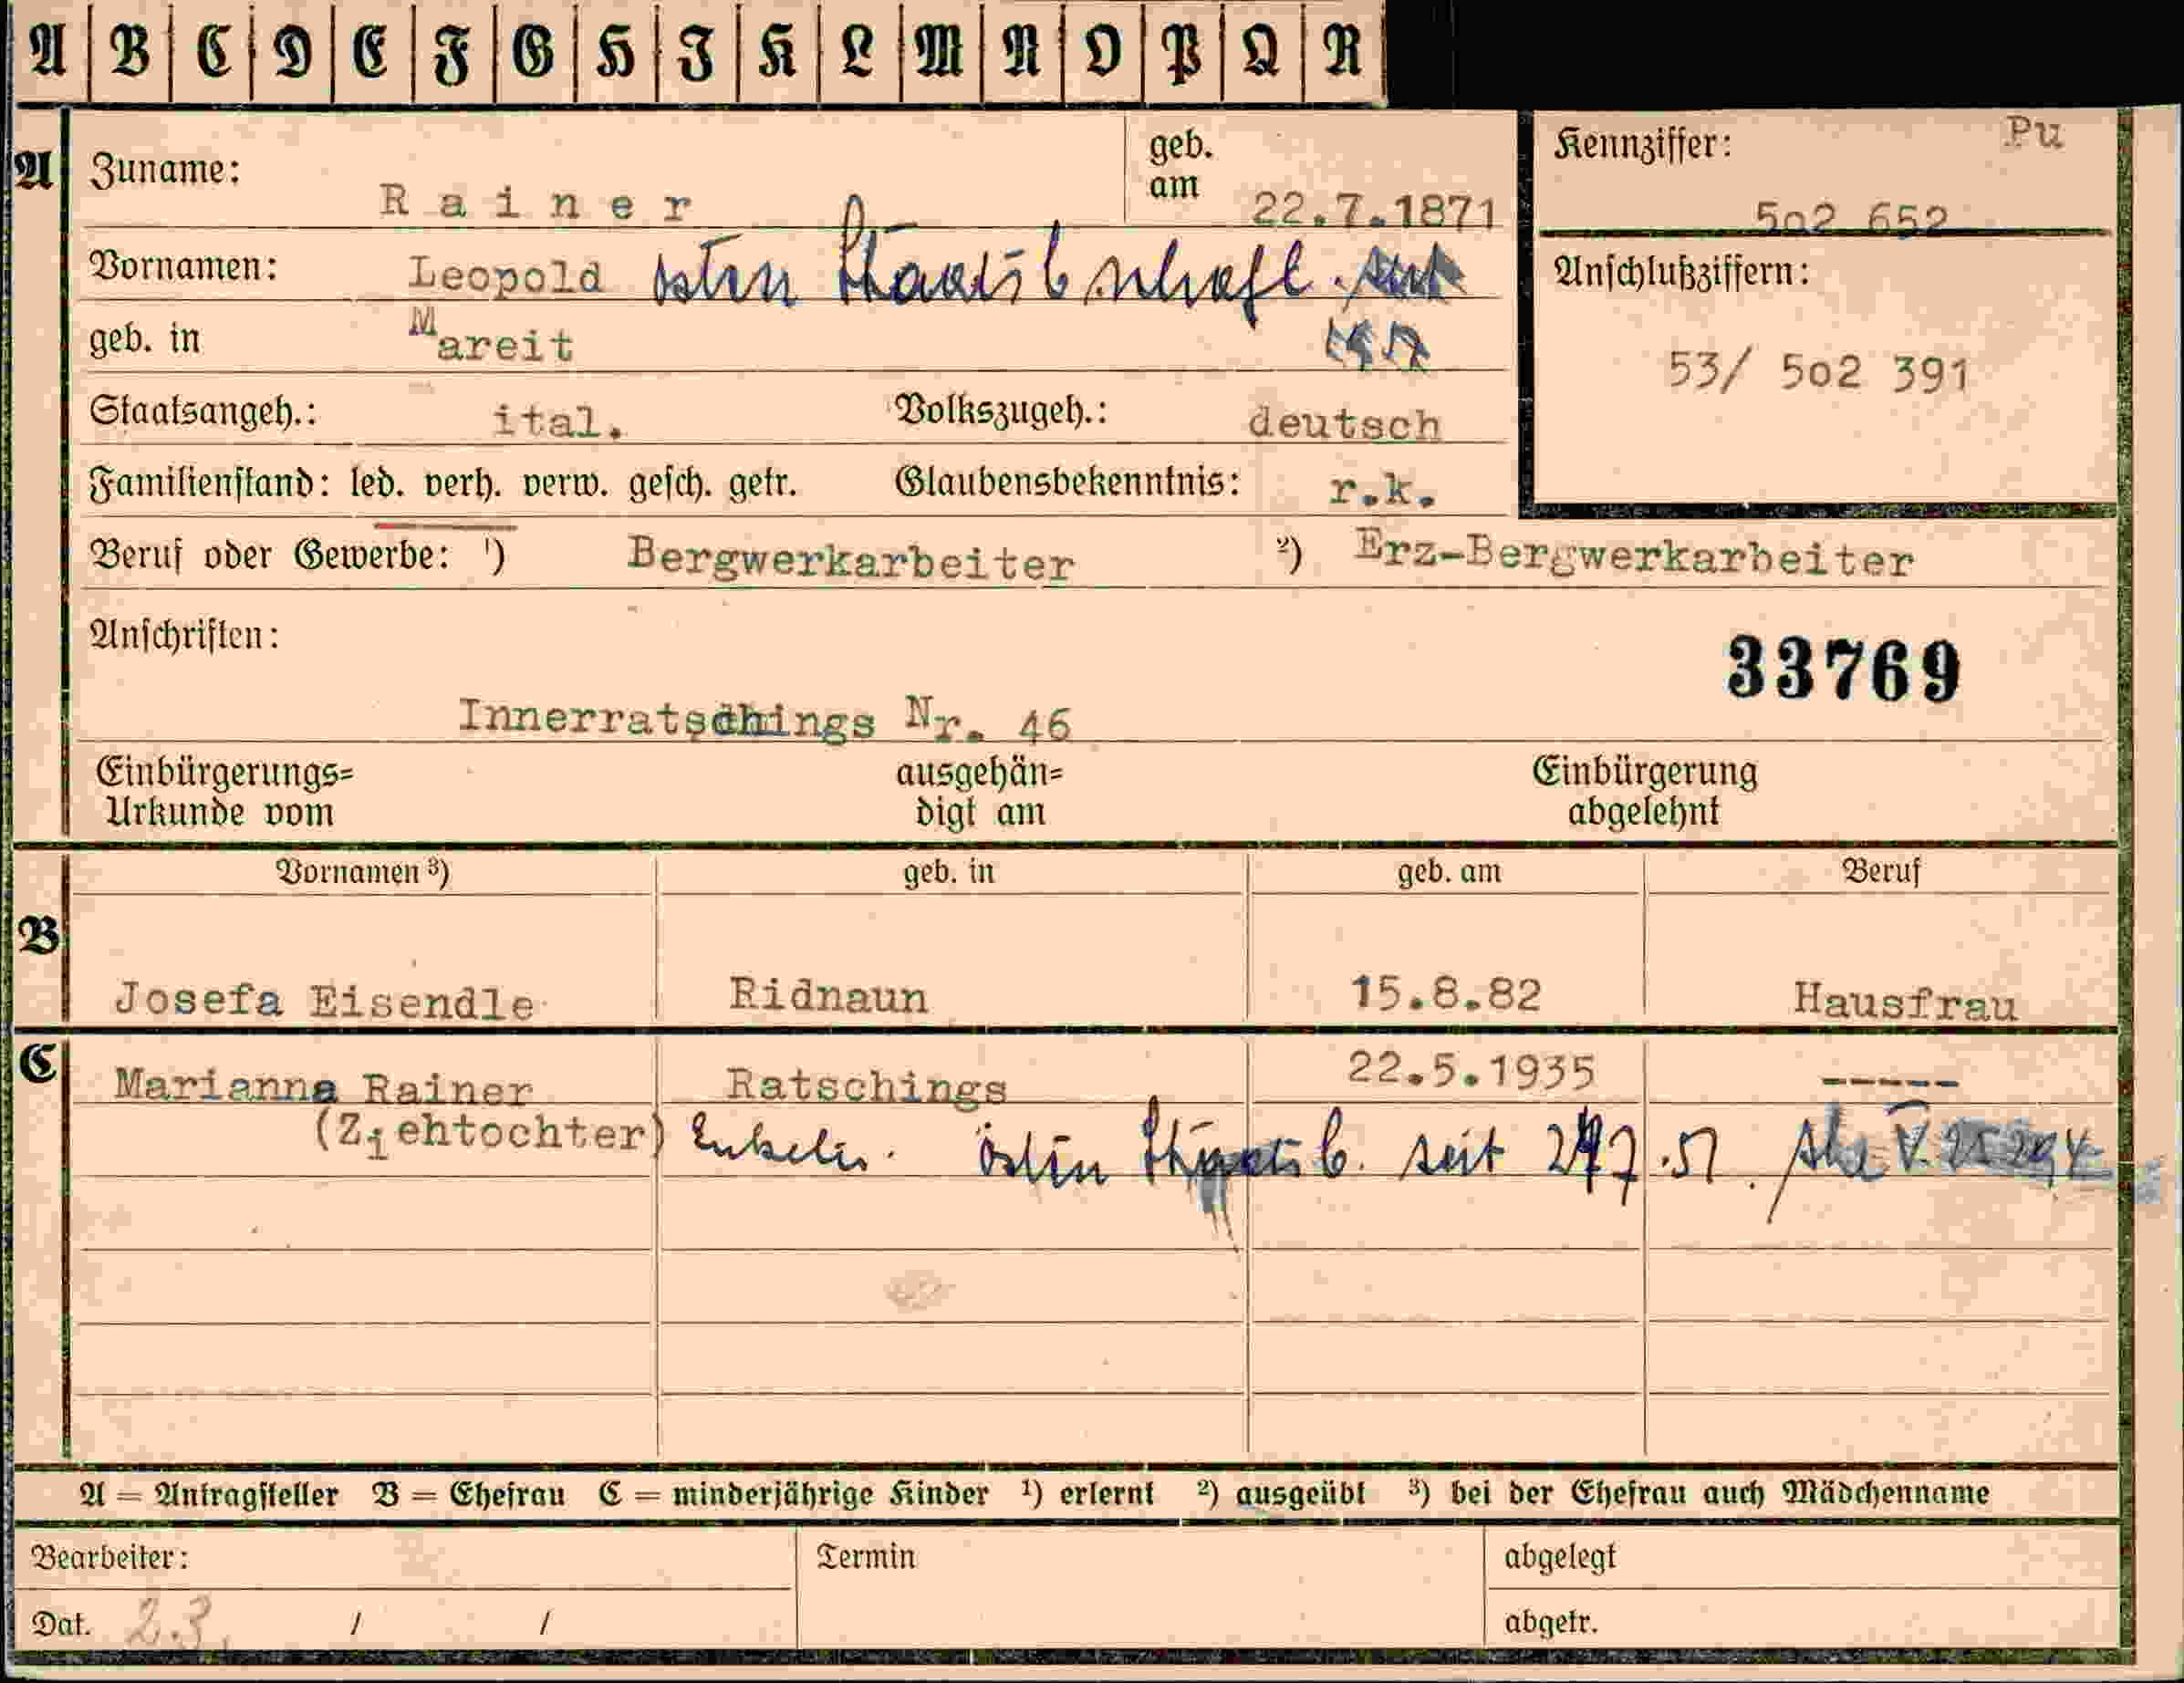 A B C D E F G H I K L M N O P Q R
A Zuname: Rainer geb. am 22.7.1871
Kennziffer: Pu
502 652
Vornamen: Leopold östrr Staatsbschaft.
Anschlußziffern:
53/ 502 391
geb. in Mareit
Staatsangeh.: ital. Volkszugeh.: deutsch
Familienstand: led. verh. verw. gesch. getr. Glaubensbekenntnis: r.k.
Beruf oder Gewerbe: ¹) Bergwerkarbeiter ²) Erz-Bergwerkarbeiter
Anschriften:
33769
Innerratschings Nr. 46
Einbürgerungs= ausgehän= Einbürgerung
Urkunde vom digt am abgelehnt
Vornamen ³) geb. in geb. am Beruf
B
Josefa Eisendle Ridnaun 15.8.82 Hausfrau
C Marianna Rainer Ratschings 22.5.1935 -----
(Ziehtochter) Enkelin. seit
A = Antragsteller B = Ehefrau C = minderjährige Kinder ¹) erlernt ²) ausgeübt ³) bei der Ehefrau auch Mädchenname
Bearbeiter: Termin abgelegt
Dat. 23. / / abgetr.